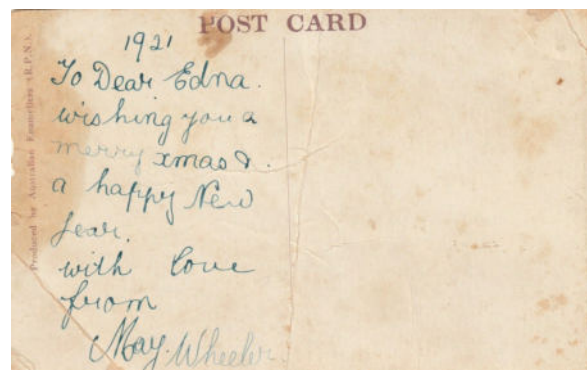 POST CARD
1921
To Dear Edna.
wishing you a
merry xmas &.
a happy New
Year.
with love
from
May. Wheeler
Produced by Australian Enamellers (R.P.N.).